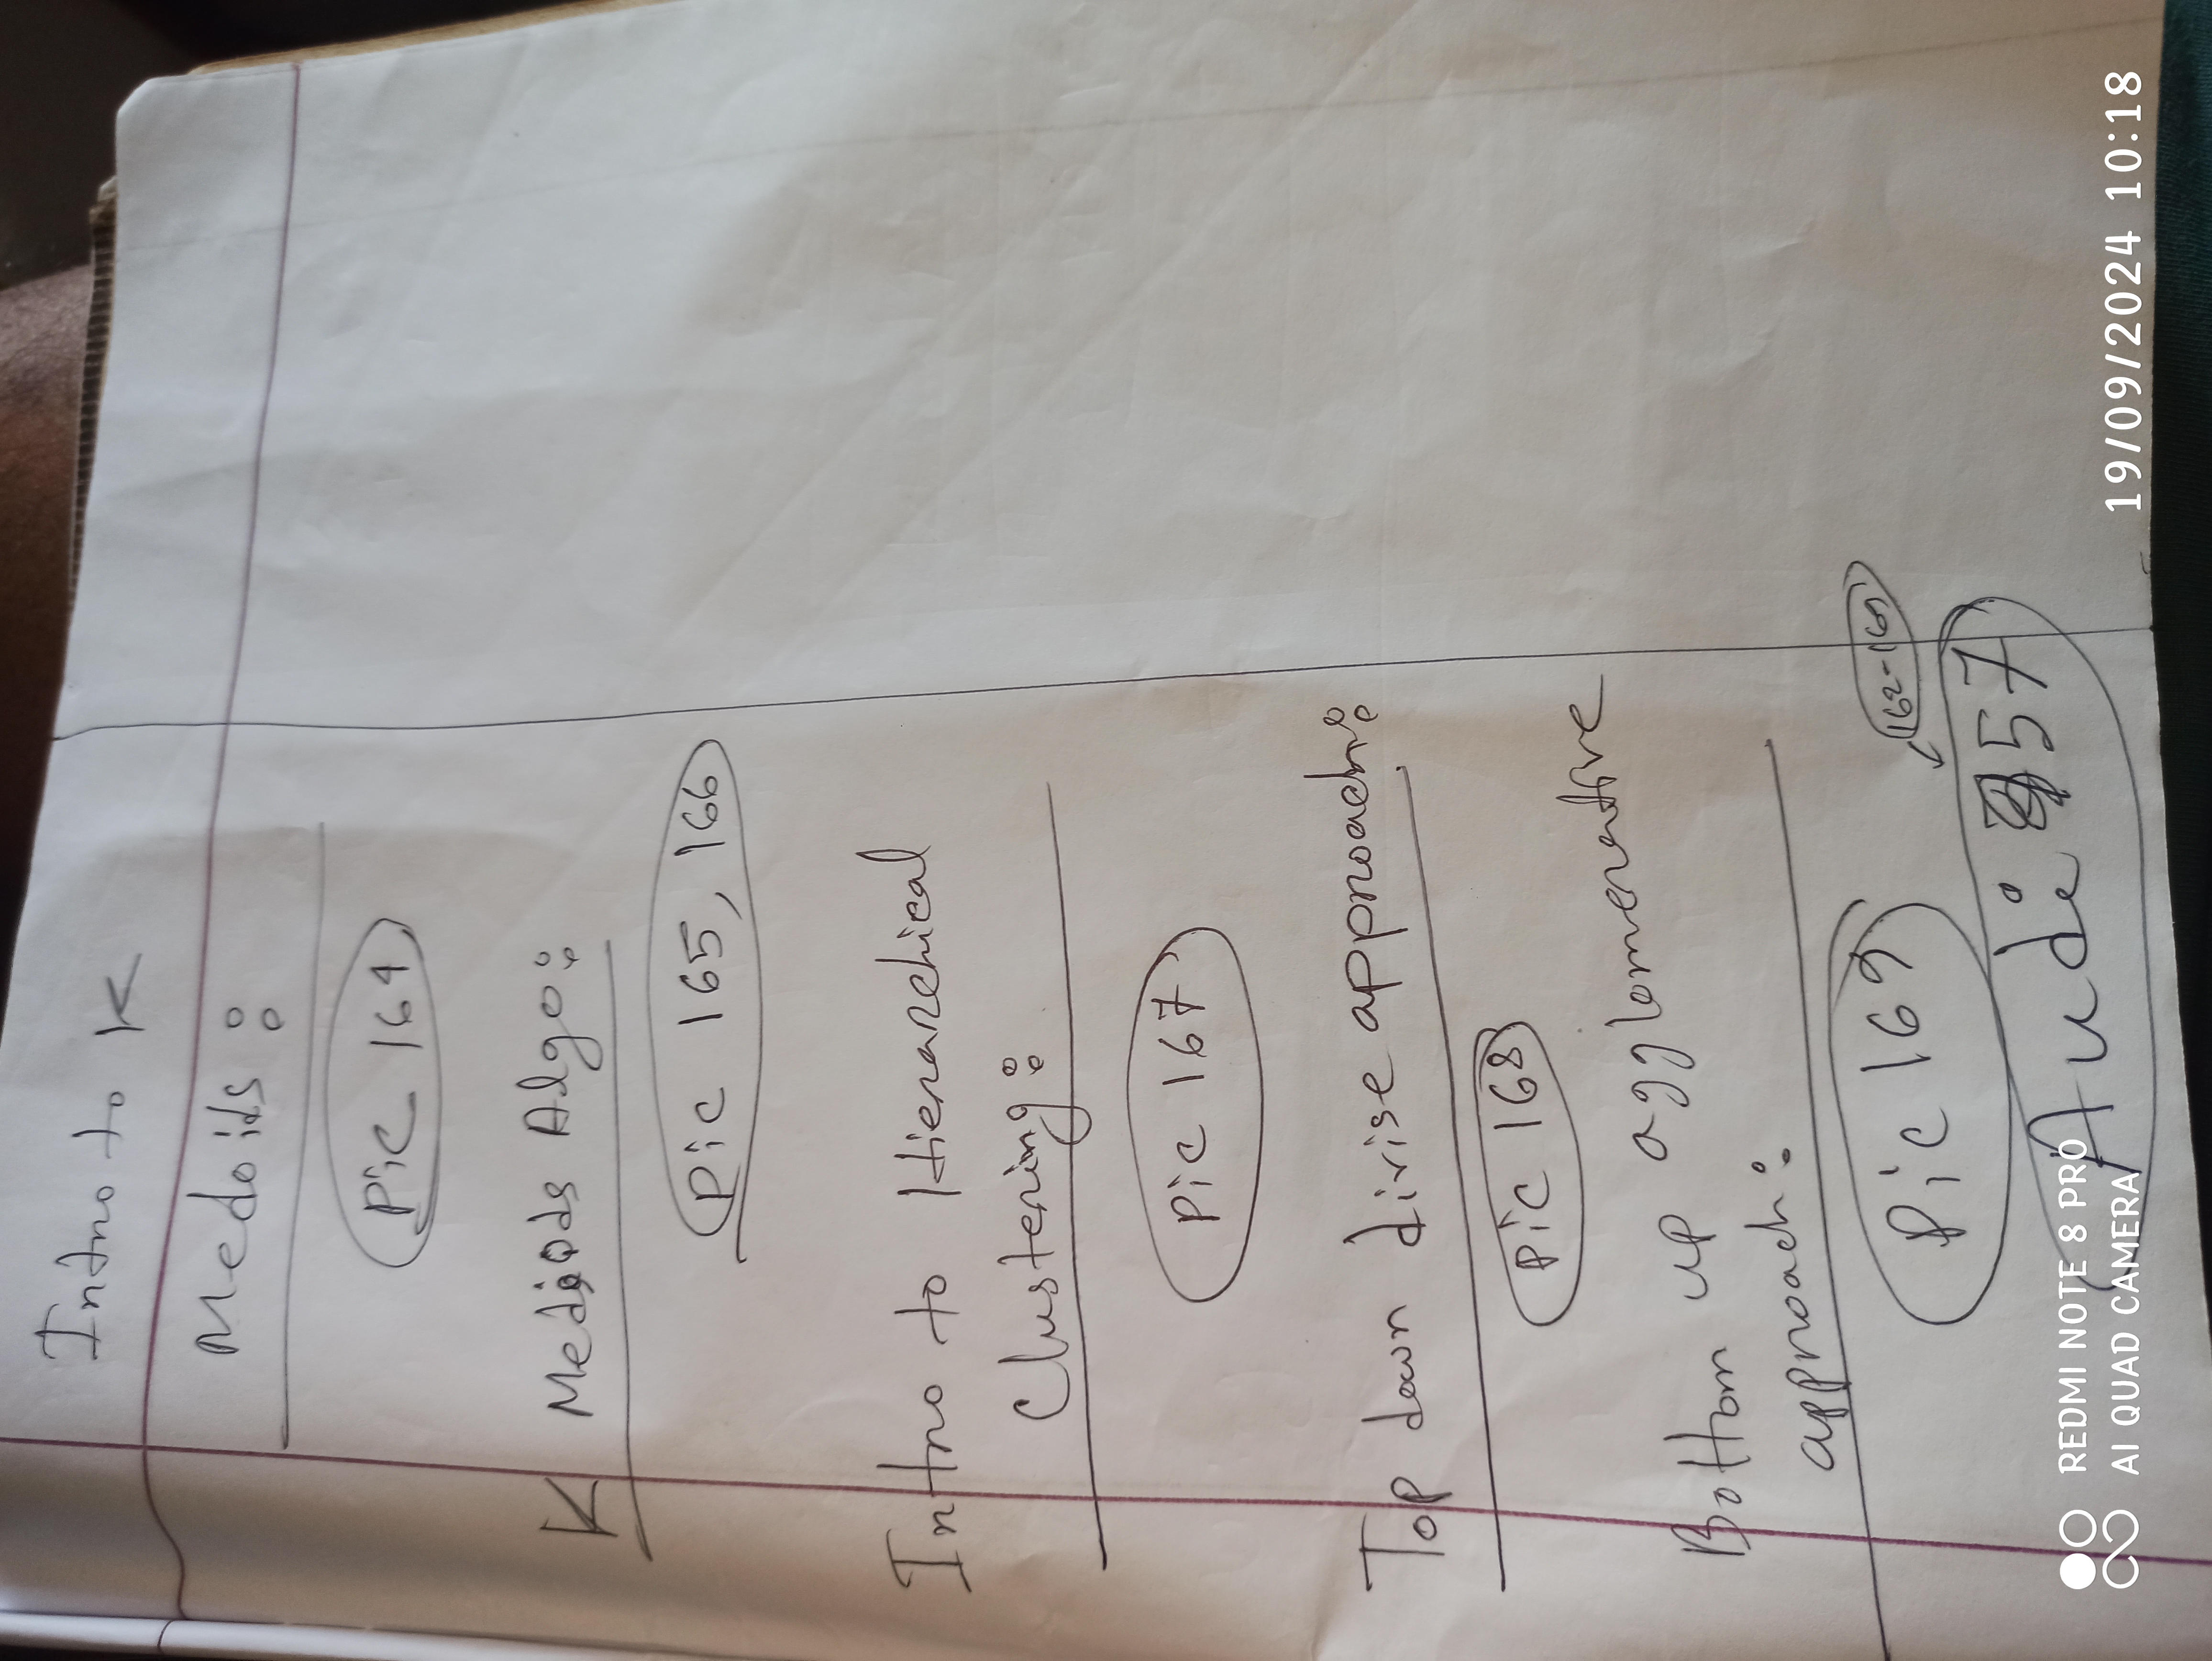 Intro to K
Medoids:
Pic 164
K Mediods Algo:
Pic 165, 166
Intro to Hierarchical
Clustering:
Pic 167
Top down divise approach:
Pic 168
Bottom up agglomerative
approach:
Pic 169
162-169
Audi 57
REDMI NOTE 8 PRO
AI QUAD CAMERA
19/09/2024 10:18